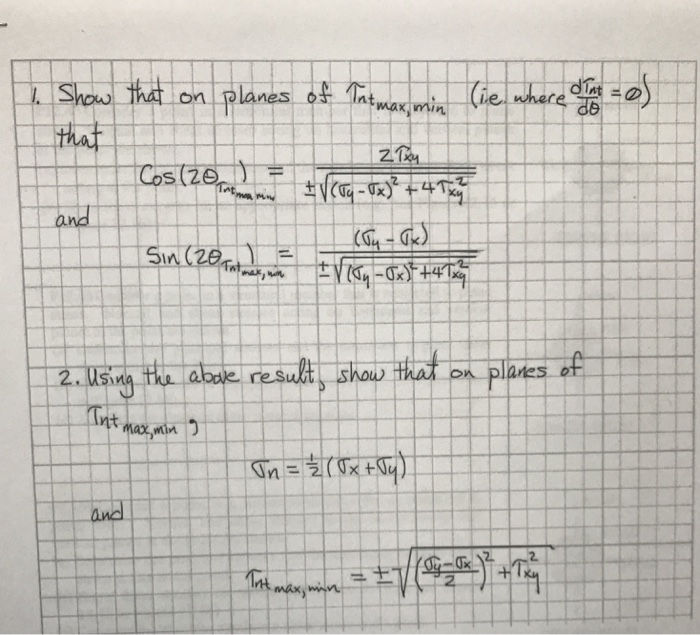 1. Show that on planes of τnt max, min (i.e. where dτnt/dθ = 0)
that
Cos(2θτnt max min) = 2τxy / ±√((σy - σx)² + 4τxy²)
and
Sin(2θτnt max, min) = (σy - σx) / ±√((σy - σx)² + 4τxy²)
2. Using the above result, show that on planes of
τnt max, min ,
σn = ½(σx + σy)
and
τnt max, min = ±√(((σy - σx)/2)² + τxy²)